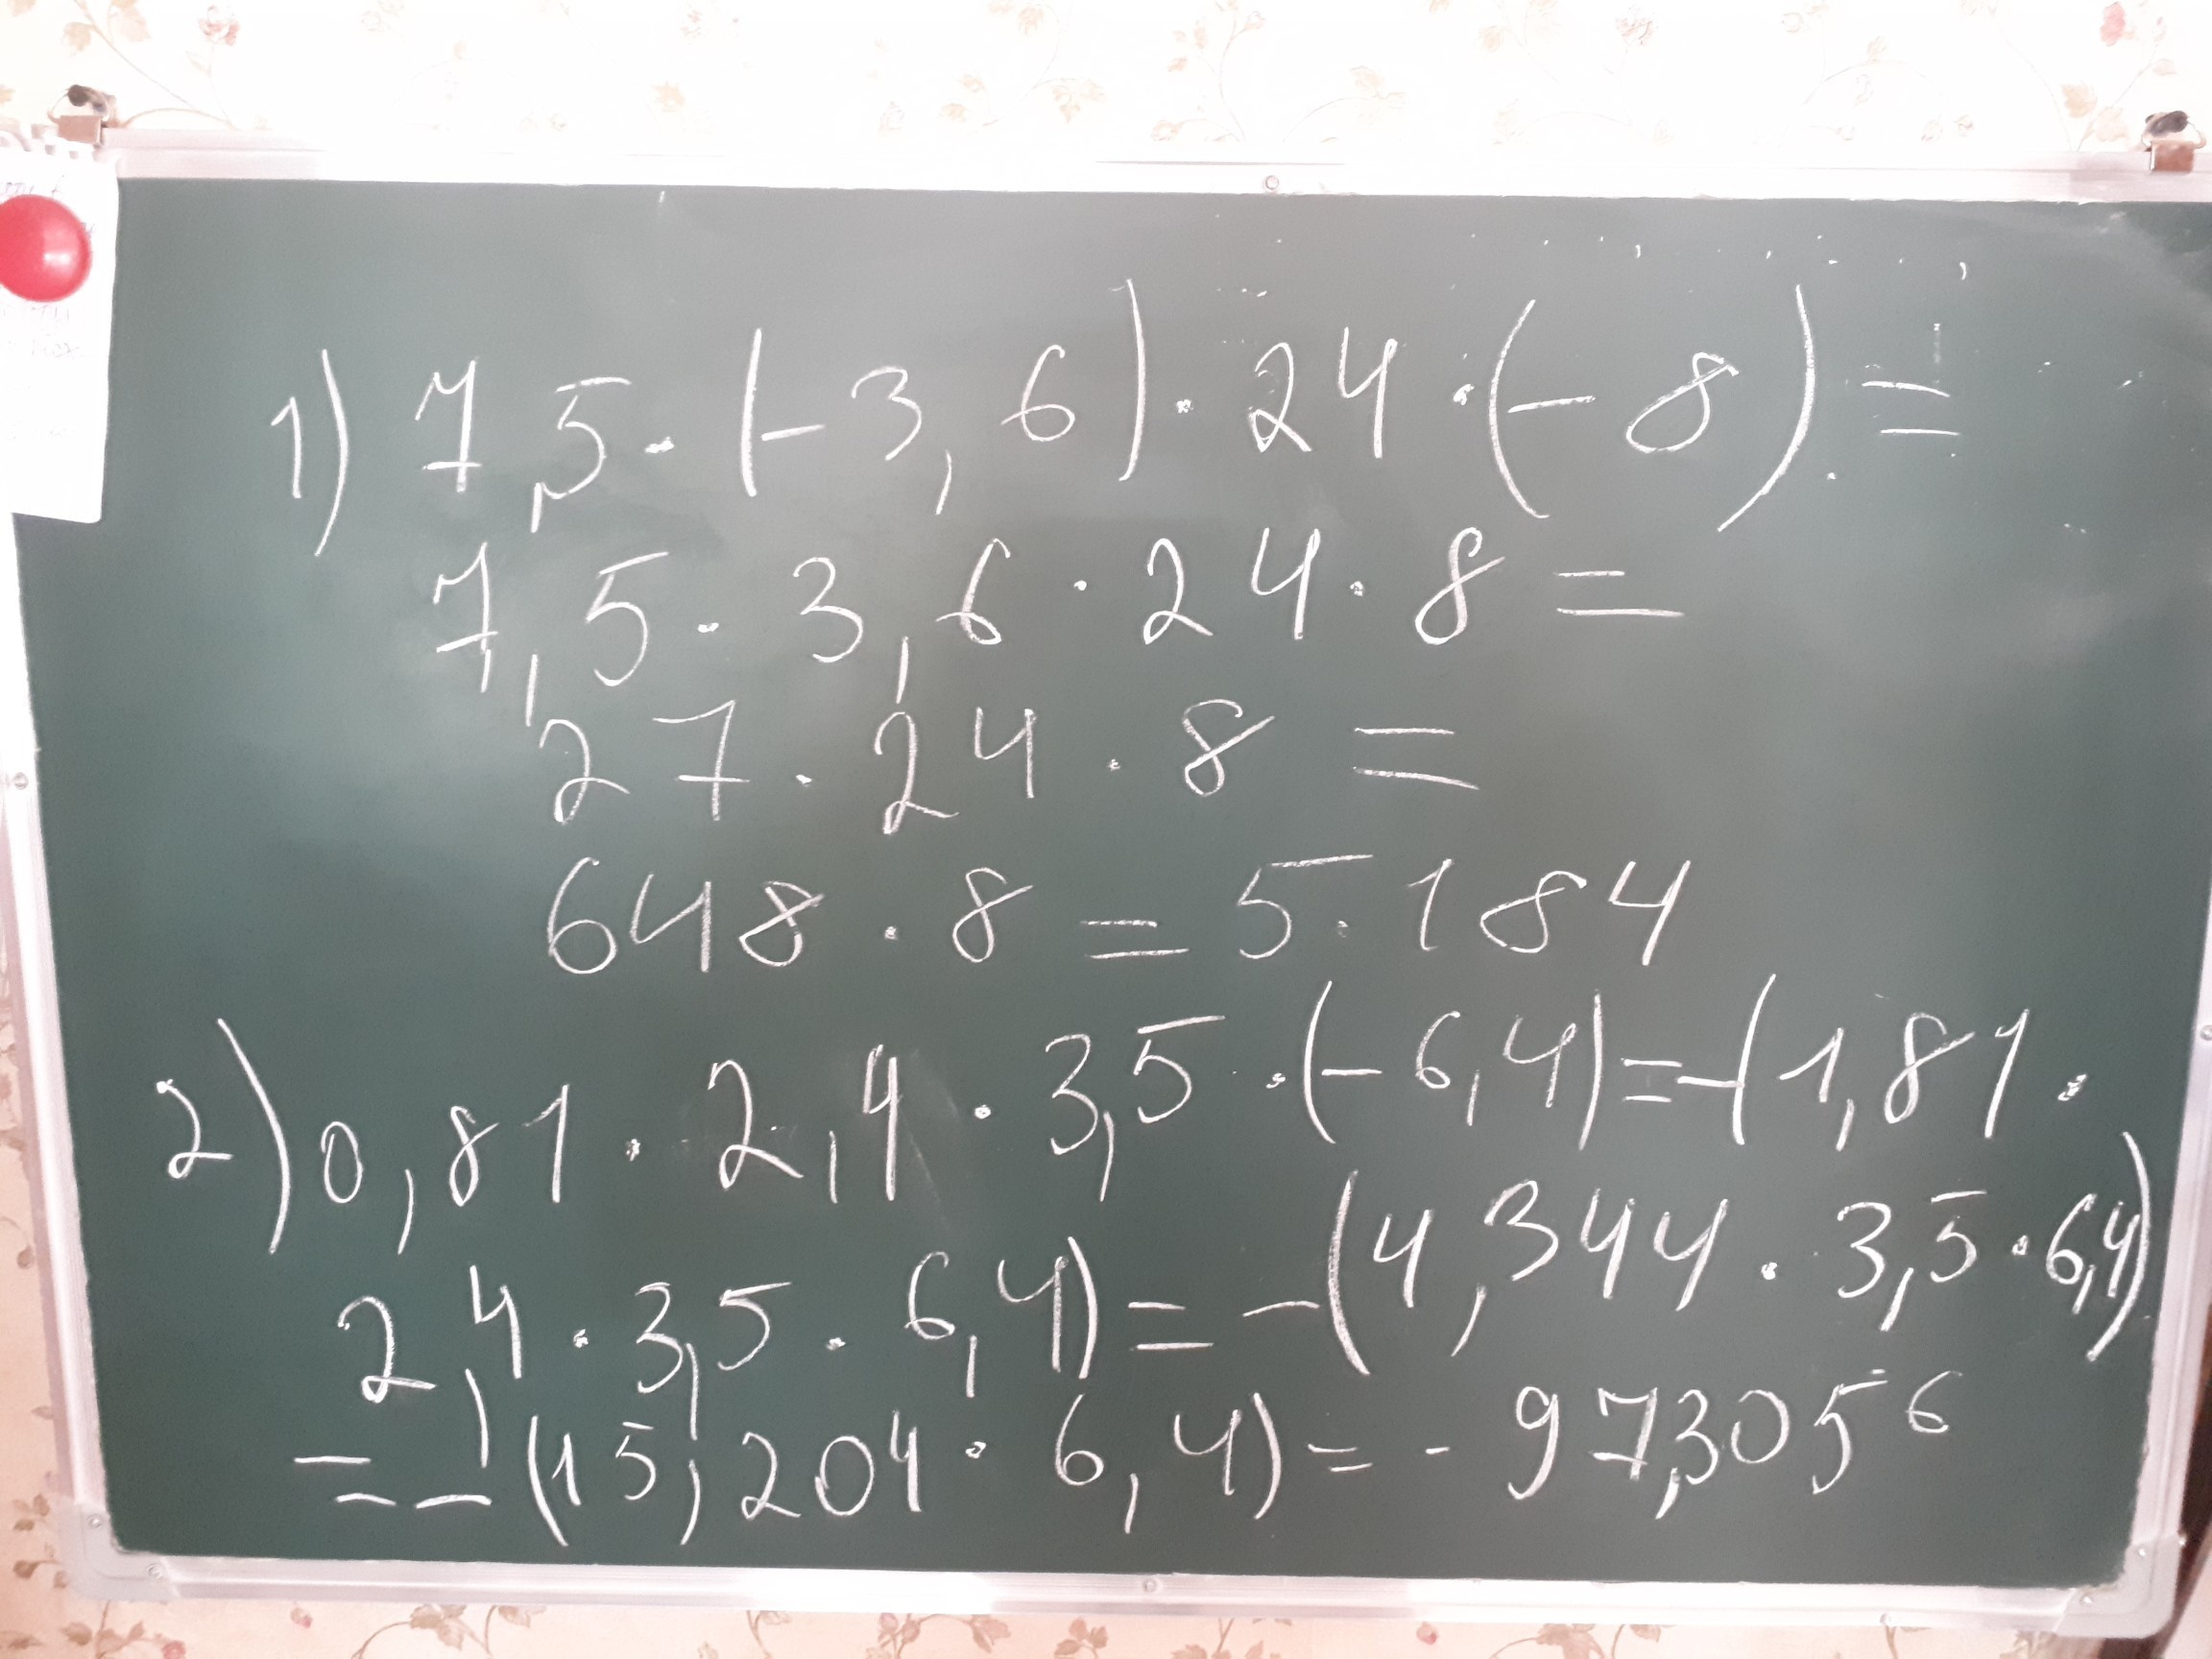 1) 7,5 · (-3,6) · 24 · (-8) =
7,5 · 3,6 · 24 · 8 =
27 · 24 · 8 =
648 · 8 = 5.184
2) 0,81 · 2,4 · 3,5 · (-6,4) = -(1,81 ·
2,4 · 3,5 · 6,4) = -(4,344 · 3,5 · 6,4)
= -(15,204 · 6,4) = - 97,3056